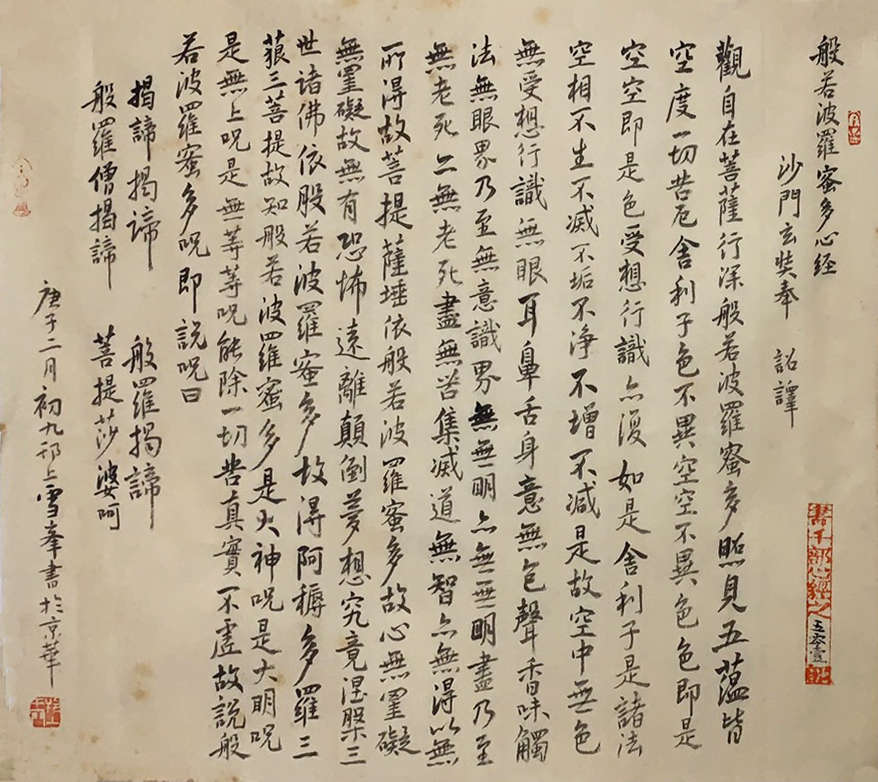 般若波羅蜜多心经
沙門玄奘奉 詔譯
觀自在菩薩行深般若波羅蜜多照見五蕴皆
空度一切苦厄舍利子色不異空空不異色色即是
空空即是色受想行識亦復如是舍利子是諸法
空相不生不滅不垢不净不增不减是故空中無色
無受想行識無眼耳鼻舌身意無色聲香味觸
法無眼界乃至無意識界無無明亦無無明盡乃至
無老死亦無老死盡無苦集滅道無智亦無得以無
所得故菩提薩埵依般若波羅蜜多故心無罣礙
無罣礙故無有恐怖遠離顛倒夢想究竟涅槃三
世諸佛依般若波羅蜜多故得阿耨多羅三
藐三菩提故知般若波羅蜜多是大神呪是大明呪
是無上呪是無等等呪能除一切苦真實不虚故說般
若波羅蜜多呪即說呪曰
揭諦揭諦 般羅揭諦
般羅僧揭諦 菩提莎婆呵
庚子二月初九邗上雪峯書於京華
書千部心經之